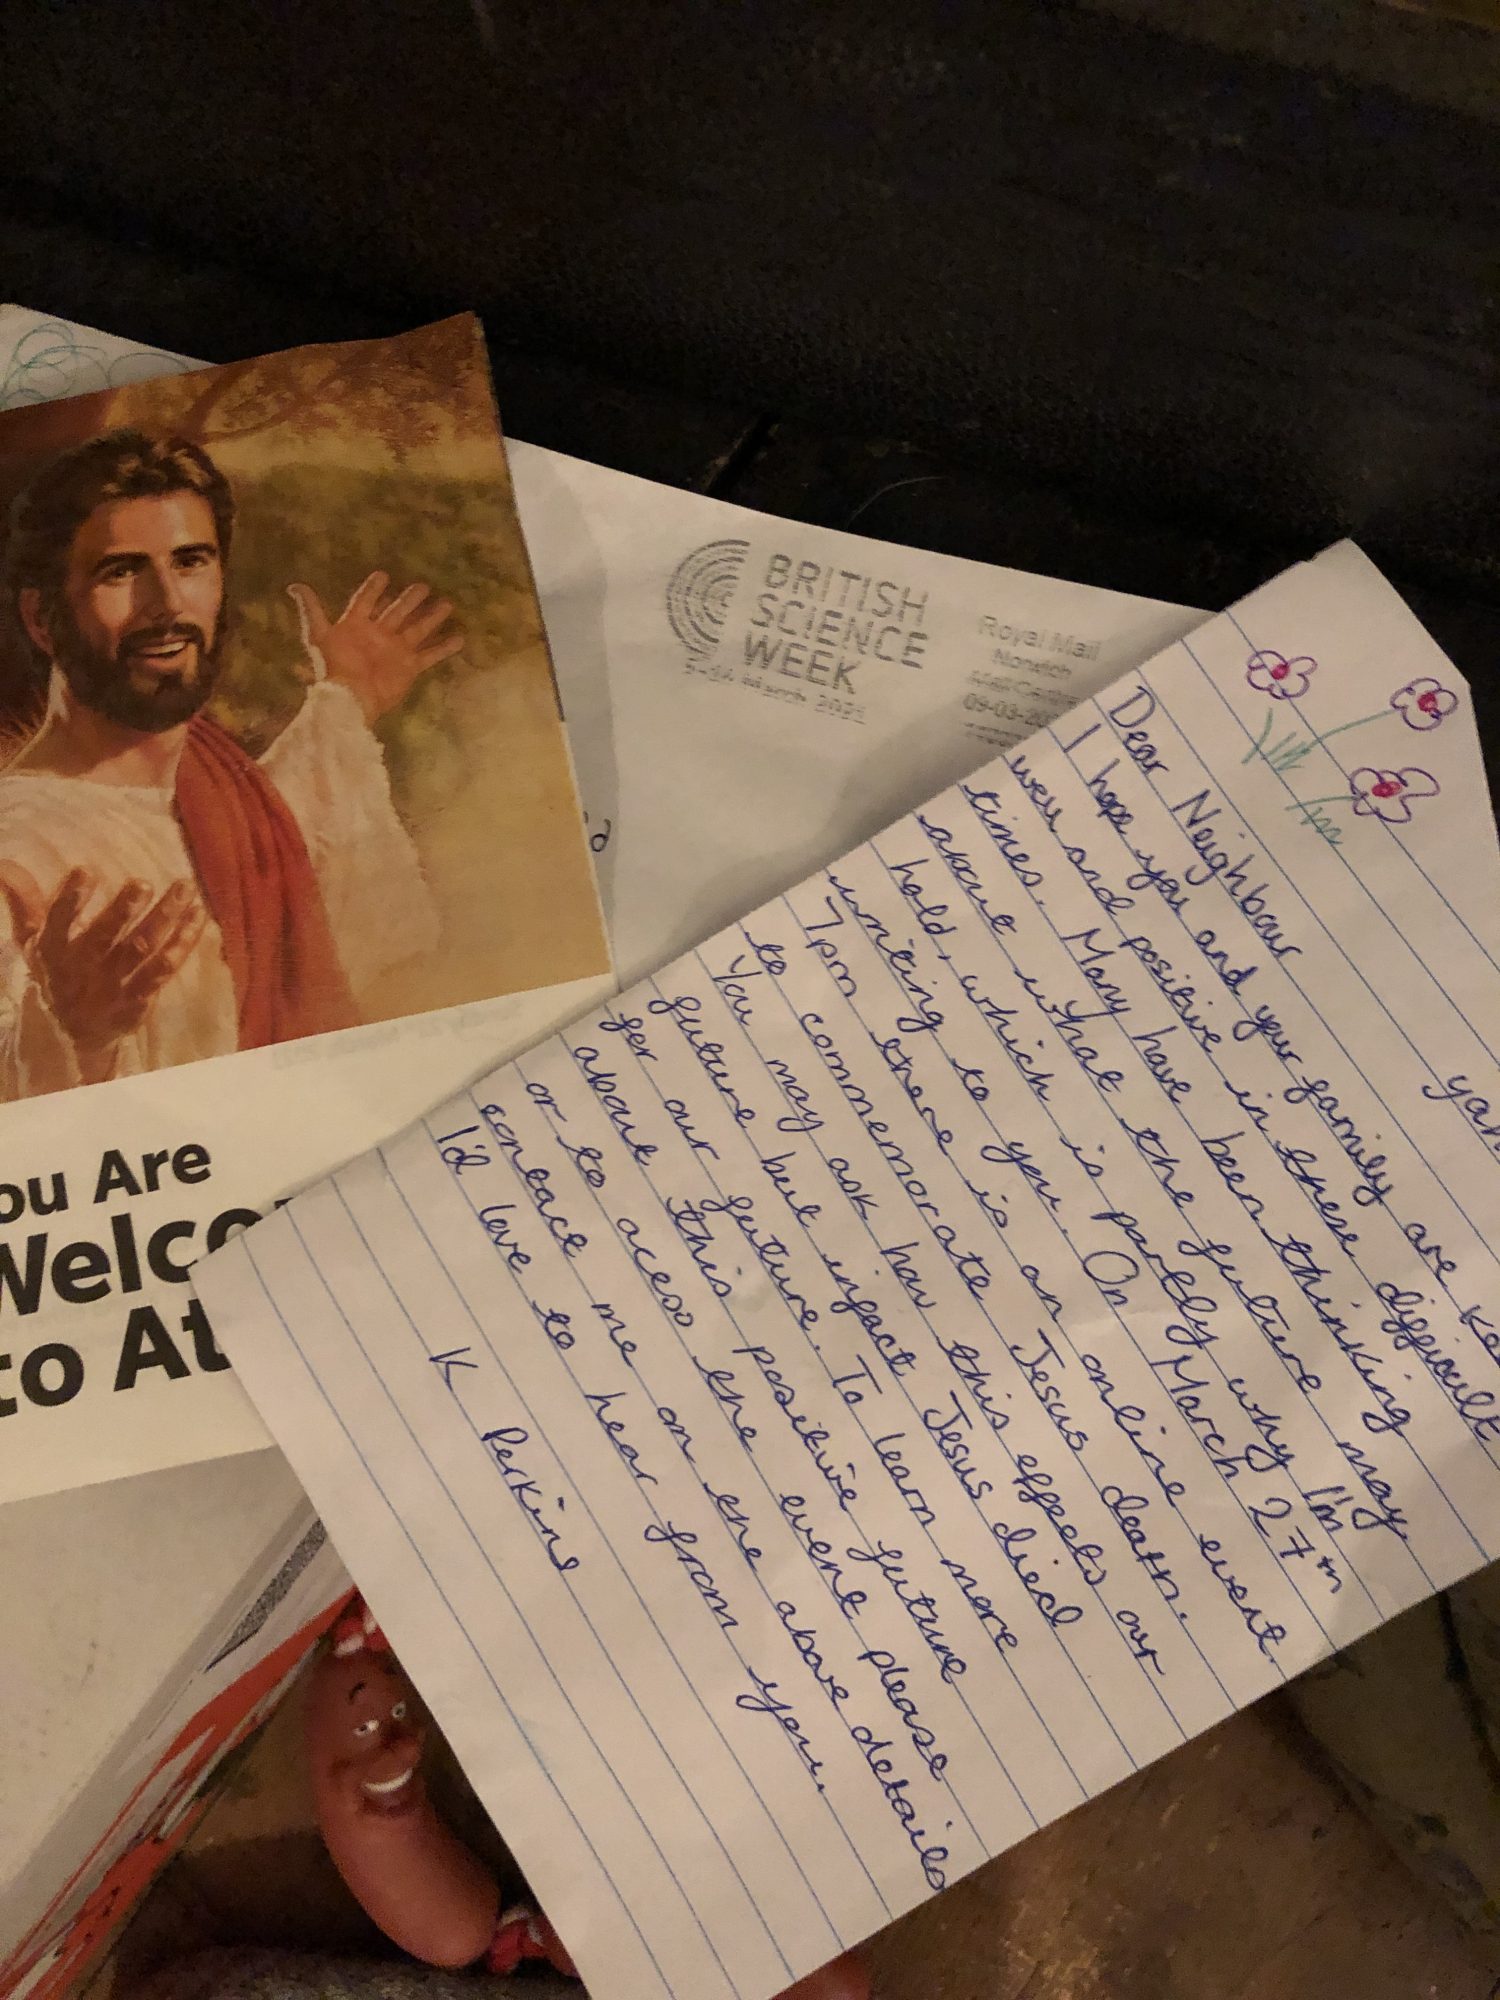 BRITISH
SCIENCE
WEEK
5-14 March 2021
Royal Mail
Norwich
Mail Centre
09-03-20
ou Are
Welco
to At
yah
Dear Neighbour
I hope you and your family are ke
well and positive in these difficult
times. Many have been thinking
about what the future may
hold, which is partly why I'm
writing to you. On March 27th
7pm there is an online event
to commemorate Jesus death.
You may ask how this effects our
future but infact Jesus died
for our future. To learn more
about this positive future
or to access the event please
contact me on the above details
I'd love to hear from you.
K Perkins